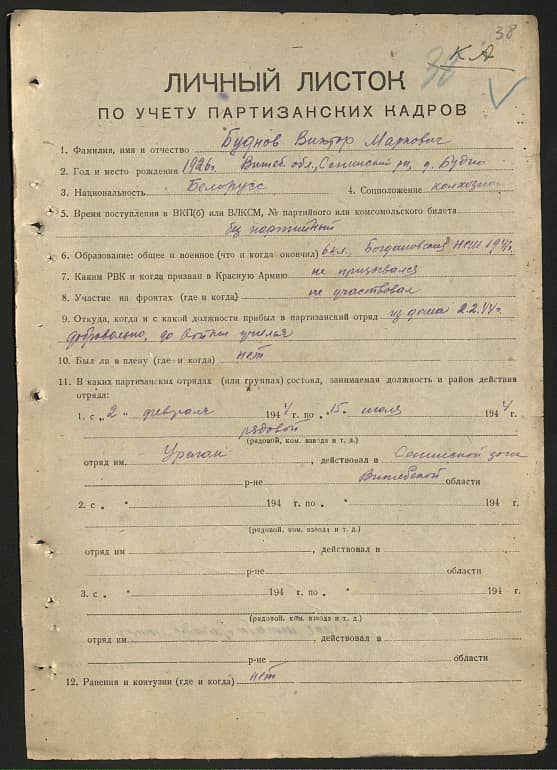 38
КА
ЛИЧНЫЙ ЛИСТОК
ПО УЧЕТУ ПАРТИЗАНСКИХ КАДРОВ
1. Фамилия, имя и отчество Буднов Виктор Маркович
2. Год и место рождения 1926г. Витеб. обл., Сеннинский рн, д. Будно
3. Национальность Белорусс 4. Соцположение колхозник
5. Время поступления в ВКП(б) или ВЛКСМ, № партийного или комсомольского билета
без партийный
6. Образование: общее и военное (что и когда окончил) 6 кл., Богдановская НСШ 1941г.
7. Каким РВК и когда призван в Красную Армию не призывался
8. Участие на фронтах (где и когда) не участвовал
9. Откуда, когда и с какой должности прибыл в партизанский отряд из дома 2.2.44г.
добровольно, до войны учился
10. Был ли в плену (где и когда) нет
11. В каких партизанских отрядах (или группах) состоял, занимаемая должность и район действия
отряда:
1. с „2“ февраля 1944 г. по „15“ июля 1944 г.
рядовой
(рядовой, ком. взвода и т. д.)
отряд им Ураган, действовал в Сеннинской зоне
р-не Витебской области
2. с „ “ 194 г. по „ “ 194 г.
(рядовой, ком. взвода и т. д.)
отряд им , действовал в
р-не области
3. с „ “ 194 г. по „ “ 194 г.
(рядовой, ком. взвода и т. д.)
отряд им , действовал в
р-не области
12. Ранения и контузии (где и когда) нет